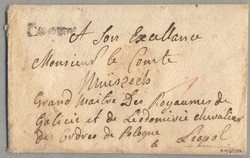 A Son Excellance
Monsieur le Comte
Mniszech
Grand Maitre Des Royaumes de
Galicie et de Lodomerie chevalier
des ordres de Pologne
a Leopol